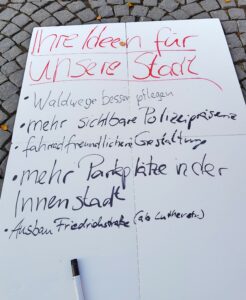 Ihre Ideen für
unsere Stadt
• Waldwege besser pflegen
• mehr sichtbare Polizeipräsenz
• fahrradfreundlichere Gestaltung
• mehr Parkplätze in der
Innenstadt
• Ausbau Friedrichstraße (ab Lutherstr.)